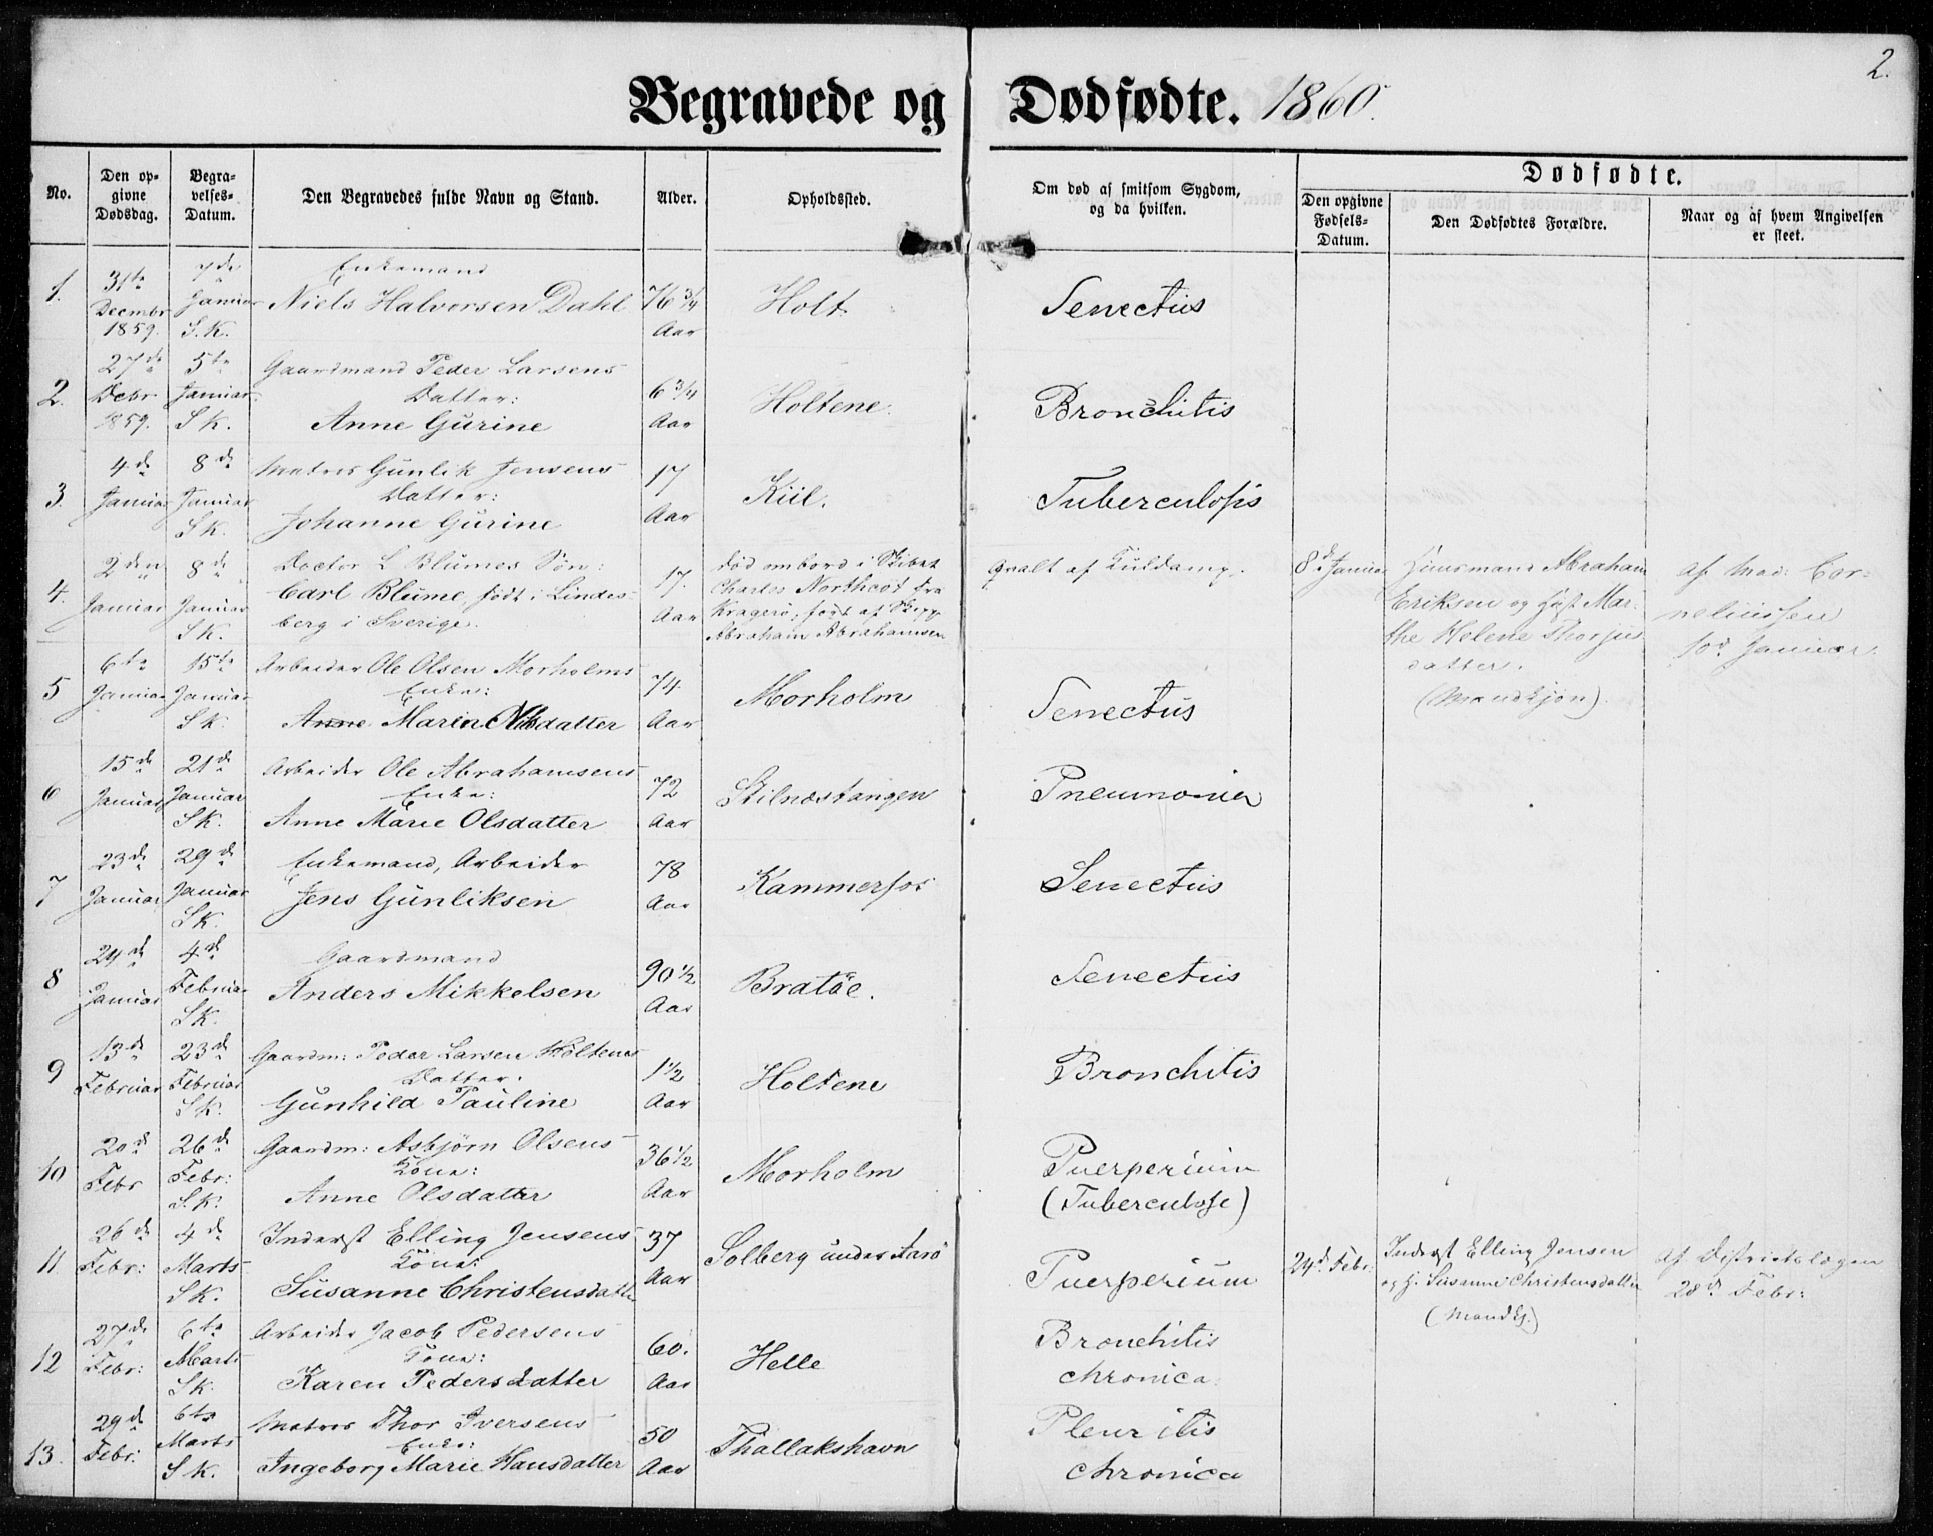 2.
Begravede og Dødfødte. 1860.
No.
Den op-
givne
Dødsdag.
Begra-
velses-
Datum.
Den Begravedes fulde Navn og Stand.
Alder.
Opholdssted.
Om død af smitsom Sygdom,
og da hvilken.
Dødfødte.
Den opgivne
Fødsels-
Datum.
Den Dødfødtes Forældre.
Naar og af hvem Angivelsen
er skeet.
1.
31te
Decembr
1859.
7de
Januar
S. K.
Enkemand
Niels Halvorsen Dahl
76 3/4
Aar
Holt
Senectus
2.
27de
Decbr
1859.
5te
Januar
S K.
Gaardmand Peder Larsens
Datter:
Anne Gurine
6 3/4
Aar
Holtene
Bronchitis
3.
4de
Januar
8de
Januar
S K.
Matros Gunlik Jensens
Datter:
Johanne Gurine
17
Aar
Kiil.
Tuberculosis
4.
2den
Januar
8de
Januar
S K.
Doctor L Blumes Søn:
Carl Blume, født i Lindes-
berg i Sverige.
17.
Aar
død ombord i Skibet
Charles Northcot fra
Kragerø, ført af Skipp
Abraham Abrahamsen
Qvalt af Kuldamp.
8de Januar
Huusmand Abraham
Eriksen og Hust Mar-
the Helene Thorjus
datter.
(Mandkjøn).
af Mad: Cor-
neliussen
10de Januar.
5
6te
Januar
15te
Januar
S K
Arbeider Ole Olsen Morholms
Enke:
Anne Maren Nilsdatter
74
Aar
Morholm
Senectus
6
15de
Januar
21de
Januar
S K.
Arbeider Ole Abrahamsens
Enke:
Anne Marie Olsdatter
72
Aar
Stilnæstangen
Pneumonia
7
23de
Januar
29de
Januar
S K.
Enkemand, Arbeider
Jens Gunliksen
78
Aar
Kammerfos
Senectus
8
24de
Januar
4de
Februar
S K.
Gaardmand
Anders Mikkelsen
90 1/2
Aar
Bratøe.
Senectus
9
13de
Februar
23de
Februar
S K.
Gaardm: Peder Larsen Holtenes
Datter:
Gunhild Pauline
1 1/2
Aar
Holtene
Bronchitis
10
20de
Febr
26de
Febr:
S. K.
Gaardm: Asbjørn Olsens
Kone:
Anne Olsdatter
36 1/2
Aar
Morholm
Puerperium
(Tuberculose)
11.
26de
Febr:
4de
Marts
S K.
Inderst Elling Jensens
Kone:
Susanne Christensdatter
37
Aar
Solberg under Aarø
Puerperium
24de Febr:
Inderst Elling Jensen
og H. Susanne Christensdatter
(Mandkj.)
af Districtslægen
28de Febr:
12
27de
Febr:
6te
Marts
S K.
Arbeider Jacob Pedersens
Kone:
Karen Pedersdatter
60.
Aar
Helle
Bronchitis
chronica.
13.
29de
Febr.
6te
Marts
S K.
Matros Thor Iversens
Enke:
Ingeborg Marie Hansdatter
50
Aar
Thallakshavn
Pleuritis
chronica